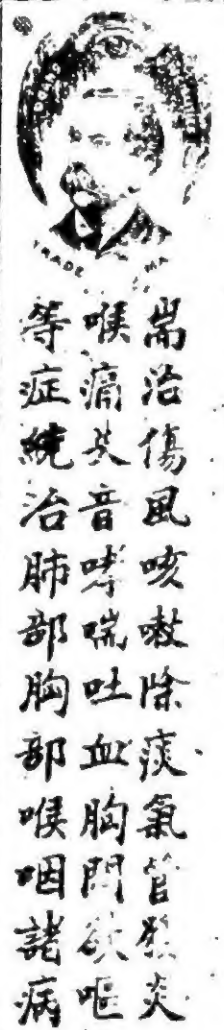 TRADE MA
耑治傷風咳嗽除痰氣管發炎
喉痛失音哮喘吐血胸悶欲嘔
等症統治肺部胸部喉咽諸病